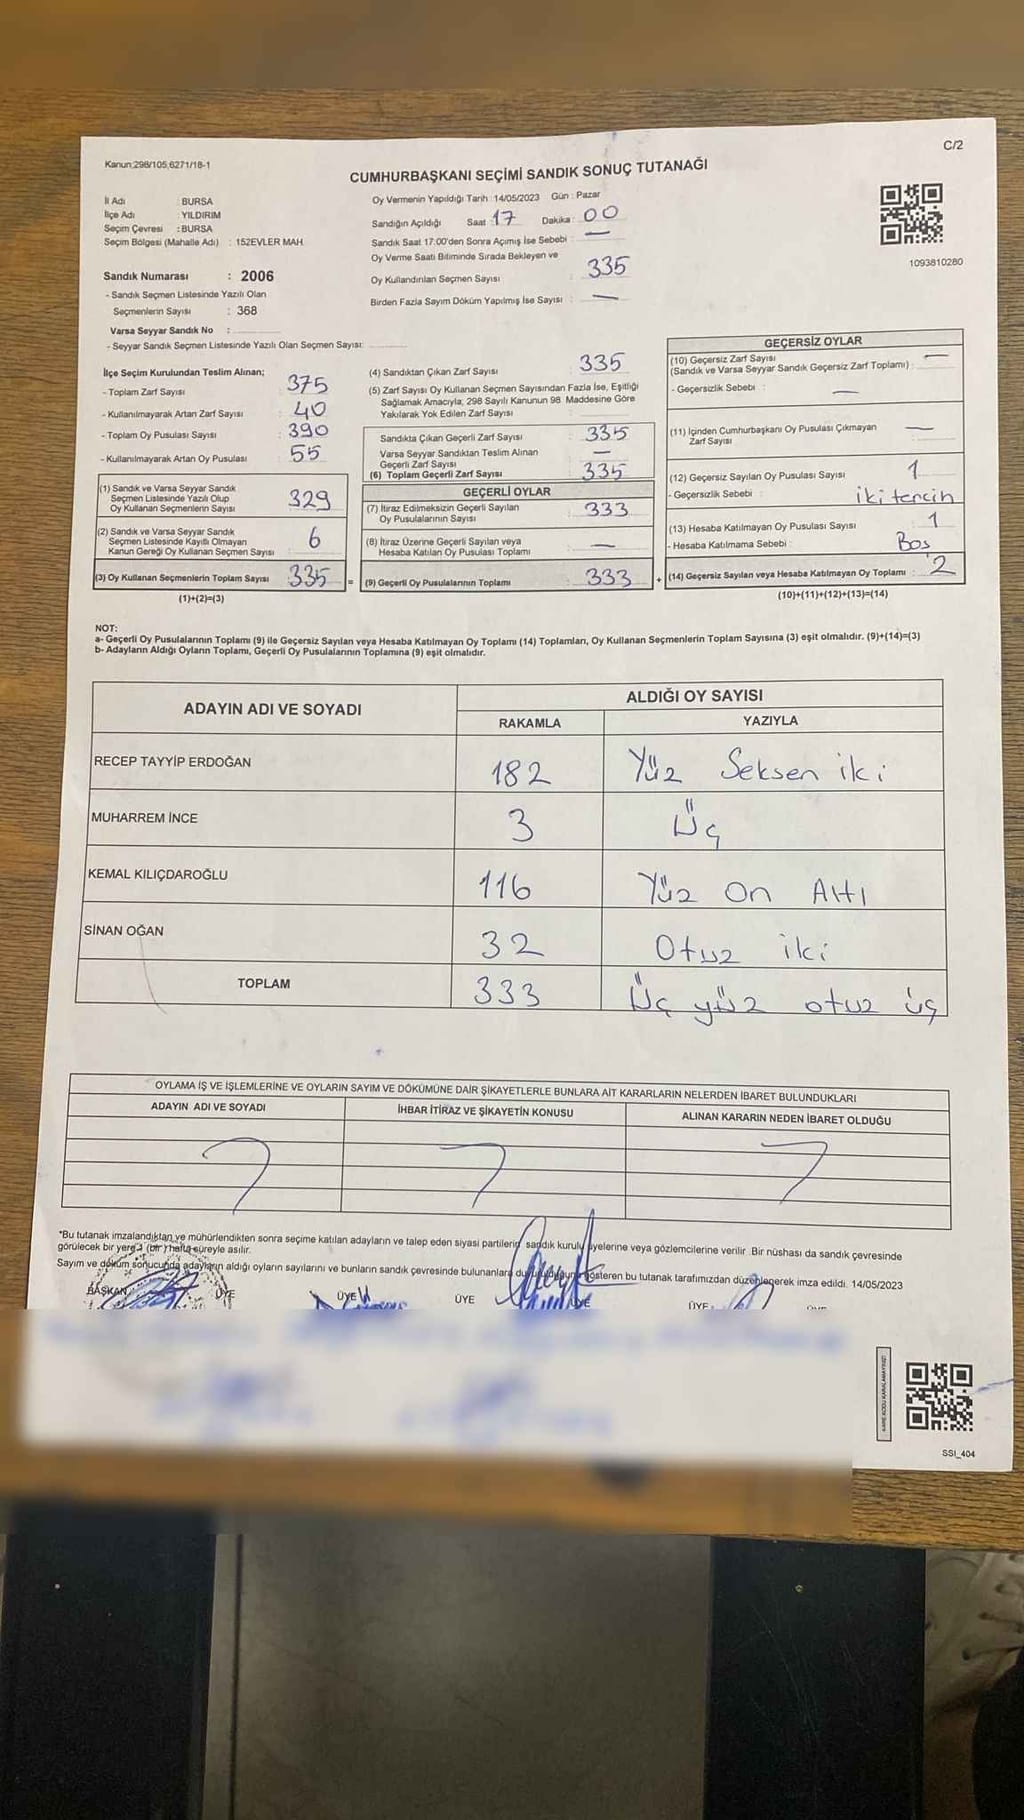 C/2
Kanun:298/105,6271/18-1
CUMHURBAŞKANI SEÇİMİ SANDIK SONUÇ TUTANAĞI
İl Adı : BURSA
İlçe Adı : YILDIRIM
Seçim Çevresi : BURSA
Seçim Bölgesi (Mahalle Adı) : 152EVLER MAH.
Sandık Numarası : 2006
- Sandık Seçmen Listesinde Yazılı Olan
Seçmenlerin Sayısı : 368
Varsa Seyyar Sandık No :
- Seyyar Sandık Seçmen Listesinde Yazılı Olan Seçmen Sayısı:
Oy Vermenin Yapıldığı Tarih : 14/05/2023 Gün : Pazar
Sandığın Açıldığı Saat : 17 Dakika : 00
Sandık Saat 17:00'den Sonra Açımış İse Sebebi : —
Oy Verme Saati Bitiminde Sırada Bekleyen ve
Oy Kullandırılan Seçmen Sayısı : 335
Birden Fazla Sayım Döküm Yapılmış İse Sayısı : —
1093810280
İlçe Seçim Kurulundan Teslim Alınan;
- Toplam Zarf Sayısı : 375
- Kullanılmayarak Artan Zarf Sayısı : 40
- Toplam Oy Pusulası Sayısı : 390
- Kullanılmayarak Artan Oy Pusulası : 55
(1) Sandık ve Varsa Seyyar Sandık
Seçmen Listesinde Yazılı Olup
Oy Kullanan Seçmenlerin Sayısı : 329
(2) Sandık ve Varsa Seyyar Sandık
Seçmen Listesinde Kayıtlı Olmayan
Kanun Gereği Oy Kullanan Seçmen Sayısı : 6
(3) Oy Kullanan Seçmenlerin Toplam Sayısı : 335 =
(1)+(2)=(3)
(4) Sandıktan Çıkan Zarf Sayısı : 335
(5) Zarf Sayısı Oy Kullanan Seçmen Sayısından Fazla İse, Eşitliği
Sağlamak Amacıyla; 298 Sayılı Kanunun 98. Maddesine Göre
Yakılarak Yok Edilen Zarf Sayısı :
Sandıkta Çıkan Geçerli Zarf Sayısı : 335
Varsa Seyyar Sandıktan Teslim Alınan
Geçerli Zarf Sayısı : —
(6) Toplam Geçerli Zarf Sayısı : 335
GEÇERLİ OYLAR
(7) İtiraz Edilmeksizin Geçerli Sayılan
Oy Pusulalarının Sayısı : 333
(8) İtiraz Üzerine Geçerli Sayılan veya
Hesaba Katılan Oy Pusulası Toplamı : —
(9) Geçerli Oy Pusulalarının Toplamı : 333 +
GEÇERSİZ OYLAR
(10) Geçersiz Zarf Sayısı
(Sandık ve Varsa Seyyar Sandık Geçersiz Zarf Toplamı) : —
- Geçersizlik Sebebi : —
(11) İçinden Cumhurbaşkanı Oy Pusulası Çıkmayan
Zarf Sayısı : —
(12) Geçersiz Sayılan Oy Pusulası Sayısı : 1
- Geçersizlik Sebebi : iki tercih
(13) Hesaba Katılmayan Oy Pusulası Sayısı : 1
- Hesaba Katılmama Sebebi : Boş
(14) Geçersiz Sayılan veya Hesaba Katılmayan Oy Toplamı : 2
(10)+(11)+(12)+(13)=(14)
NOT:
a- Geçerli Oy Pusulalarının Toplamı (9) ile Geçersiz Sayılan veya Hesaba Katılmayan Oy Toplamı (14) Toplamları, Oy Kullanan Seçmenlerin Toplam Sayısına (3) eşit olmalıdır. (9)+(14)=(3)
b- Adayların Aldığı Oyların Toplamı, Geçerli Oy Pusulalarının Toplamına (9) eşit olmalıdır.
ADAYIN ADI VE SOYADI ALDIĞI OY SAYISI
RAKAMLA YAZIYLA
RECEP TAYYİP ERDOĞAN 182 Yüz Seksen iki
MUHARREM İNCE 3 Üç
KEMAL KILIÇDAROĞLU 116 Yüz On Altı
SİNAN OĞAN 32 Otuz iki
TOPLAM 333 Üç yüz otuz üç
OYLAMA İŞ VE İŞLEMLERİNE VE OYLARIN SAYIM VE DÖKÜMÜNE DAİR ŞİKAYETLERLE BUNLARA AİT KARARLARIN NELERDEN İBARET BULUNDUKLARI
ADAYIN ADI VE SOYADI İHBAR İTİRAZ VE ŞİKAYETİN KONUSU ALINAN KARARIN NEDEN İBARET OLDUĞU
*Bu tutanak imzalandıktan ve mühürlendikten sonra seçime katılan adayların ve talep eden siyasi partilerin sandık kurulu üyelerine veya gözlemcilerine verilir. Bir nüshası da sandık çevresinde
görülecek bir yere 1 (bir) hafta süreyle asılır.
Sayım ve döküm sonucunda adayların aldığı oyların sayılarını ve bunların sandık çevresinde bulunanlara duyurulduğunu gösteren bu tutanak tarafımızdan düzenlenerek imza edildi. 14/05/2023
BAŞKAN ÜYE ÜYE ÜYE ÜYE ÜYE
SSI_404